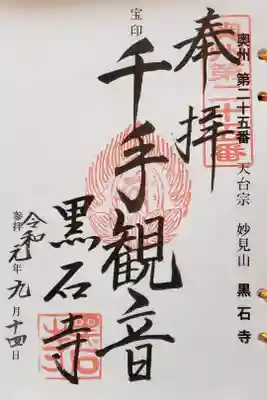 奥州 第二十五番 天台宗 妙見山 黒石寺
奥州第二十五番
奉拝
千手観音
宝印
黒石寺
令和元年九月十四日
参拝